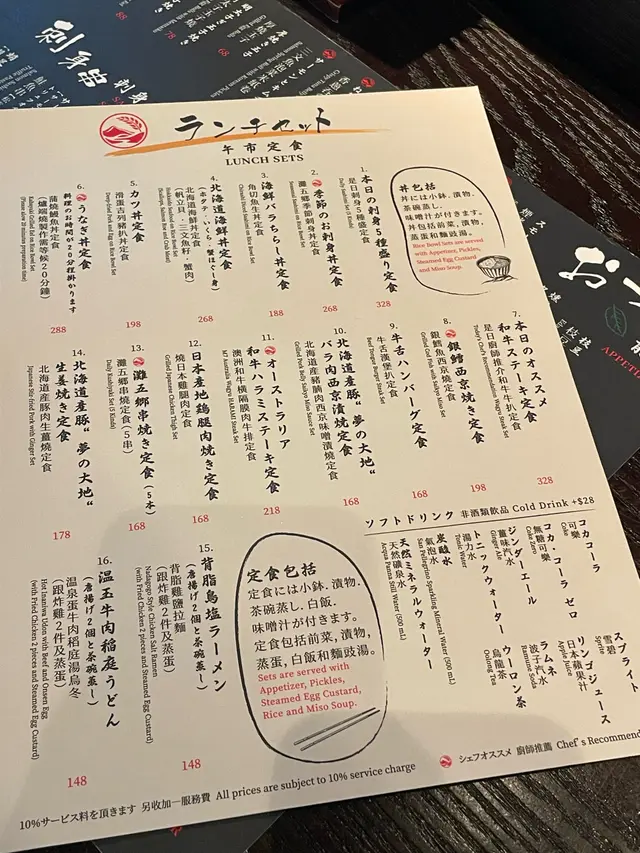 刺身品
ランチセット
午市定食
LUNCH SETS
丼包括
丼には小鉢．漬物．
茶碗蒸し．
味噌汁が付きます。
丼包括前菜，漬物，
蒸蛋和麵豉湯。
Rice Bowl Sets are served
with Appetizer, Pickles,
Steamed Egg Custard
and Miso Soup.
1.
本日の刺身5種盛り定食
是日刺身5種盛定食
328
2.
季節のお刺身丼定食
灘五郷季節刺身丼定食
268
3.
海鮮バラちらし丼定食
角切魚生丼定食
188
4.
北海道海鮮丼定食
(ホタテ、いくら、蟹ほぐし身)
北海道海鮮丼定食
(帆立貝．三文魚籽．蟹肉)
268
5.
カツ丼定食
滑蛋吉列豬扒丼定食
Deep-fried Pork and Egg on Rice Bowl Set
198
6.
うなぎ丼定食
料理のお時間が20分程掛かります
蒲燒鰻魚丼定食
(鰻魚燒製作需等候20分鐘)
Kabayaki Grilled Eel on Rice Bowl Set
(Please allow 20 minutes preparation time)
288
7.
本日のオススメ
和牛ステーキ定食
是日廚師推介和牛牛扒定食
Today's Chef's Recommendation Wagyu Steak Set
328
8.
銀鱈西京焼き定食
銀鱈魚西京燒定食
198
9.
牛舌ハンバーグ定食
牛舌漢堡扒定食
Beef Tongue Burger Steak Set
168
10.
北海道産豚“夢の大地“
バラ肉西京漬焼定食
北海道産豬腩肉西京味噌漬燒定食
Grilled Pork Belly Saikyo Miso Sauce Set
168
11.
オーストラリア
和牛ハラミステーキ定食
澳洲和牛橫隔膜肉牛排定食
M7 Australia Wagyu HARAMI Steak Set
218
12.
日本産地鶏腿肉焼き定食
燒日本雞腿肉定食
Grilled Japanese Chicken Thigh Set
168
13.
灘五郷串焼き定食(5本)
灘五郷串燒定食(5串)
Daily Kushiyaki Set (5 Kinds)
168
14.
北海道産豚“夢の大地“
生姜焼き定食
北海道産豚肉生薑燒定食
Japanese Stir-fried Pork with Ginger Set
178
15.
背脂鳥塩ラーメン
(唐揚げ2個と茶碗蒸し)
背脂雞鹽拉麵
(跟炸雞2件及蒸蛋)
Nadagogo Style Chicken Salt Ramen
(with Fried Chicken 2 pieces and Steamed Egg Custard)
148
16.
温玉牛肉稲庭うどん
(唐揚げ2個と茶碗蒸し)
温泉蛋牛肉稻庭湯烏冬
(跟炸雞2件及蒸蛋)
Hot Inaniwa Udon with Beef and Onsen Egg
(with Fried Chicken 2 pieces and Steamed Egg Custard)
148
定食包括
定食には小鉢．漬物．
茶碗蒸し．白飯．
味噌汁が付きます。
定食包括前菜，漬物，
蒸蛋，白飯和麵豉湯。
Sets are served with
Appetizer, Pickles,
Steamed Egg Custard,
Rice and Miso Soup.
ソフトドリンク 非酒類飲品 Cold Drink +$28
コカコーラ
可樂
Coke
コカ・コーラ ゼロ
無糖可樂
Coke Zero
ジンジャーエール
薑味汽水
Ginger Ale
トニックウォーター
湯力水
Tonic Water
炭酸水
氣泡水
San Pellegrino Sparkling Mineral Water (500 mL)
天然ミネラルウォーター
天然礦泉水
Acqua Panna Still Water (500 mL)
スプライト
雪碧
Sprite
リンゴジュース
日本蘋果汁
Apple Juice
ラムネ
波子汽水
Ramune Soda
ウーロン茶
烏龍茶
Oolong Tea
シェフオススメ 廚師推薦 Chef's Recommend
10%サービス料を頂きます 另收加一服務費 All prices are subject to 10% service charge